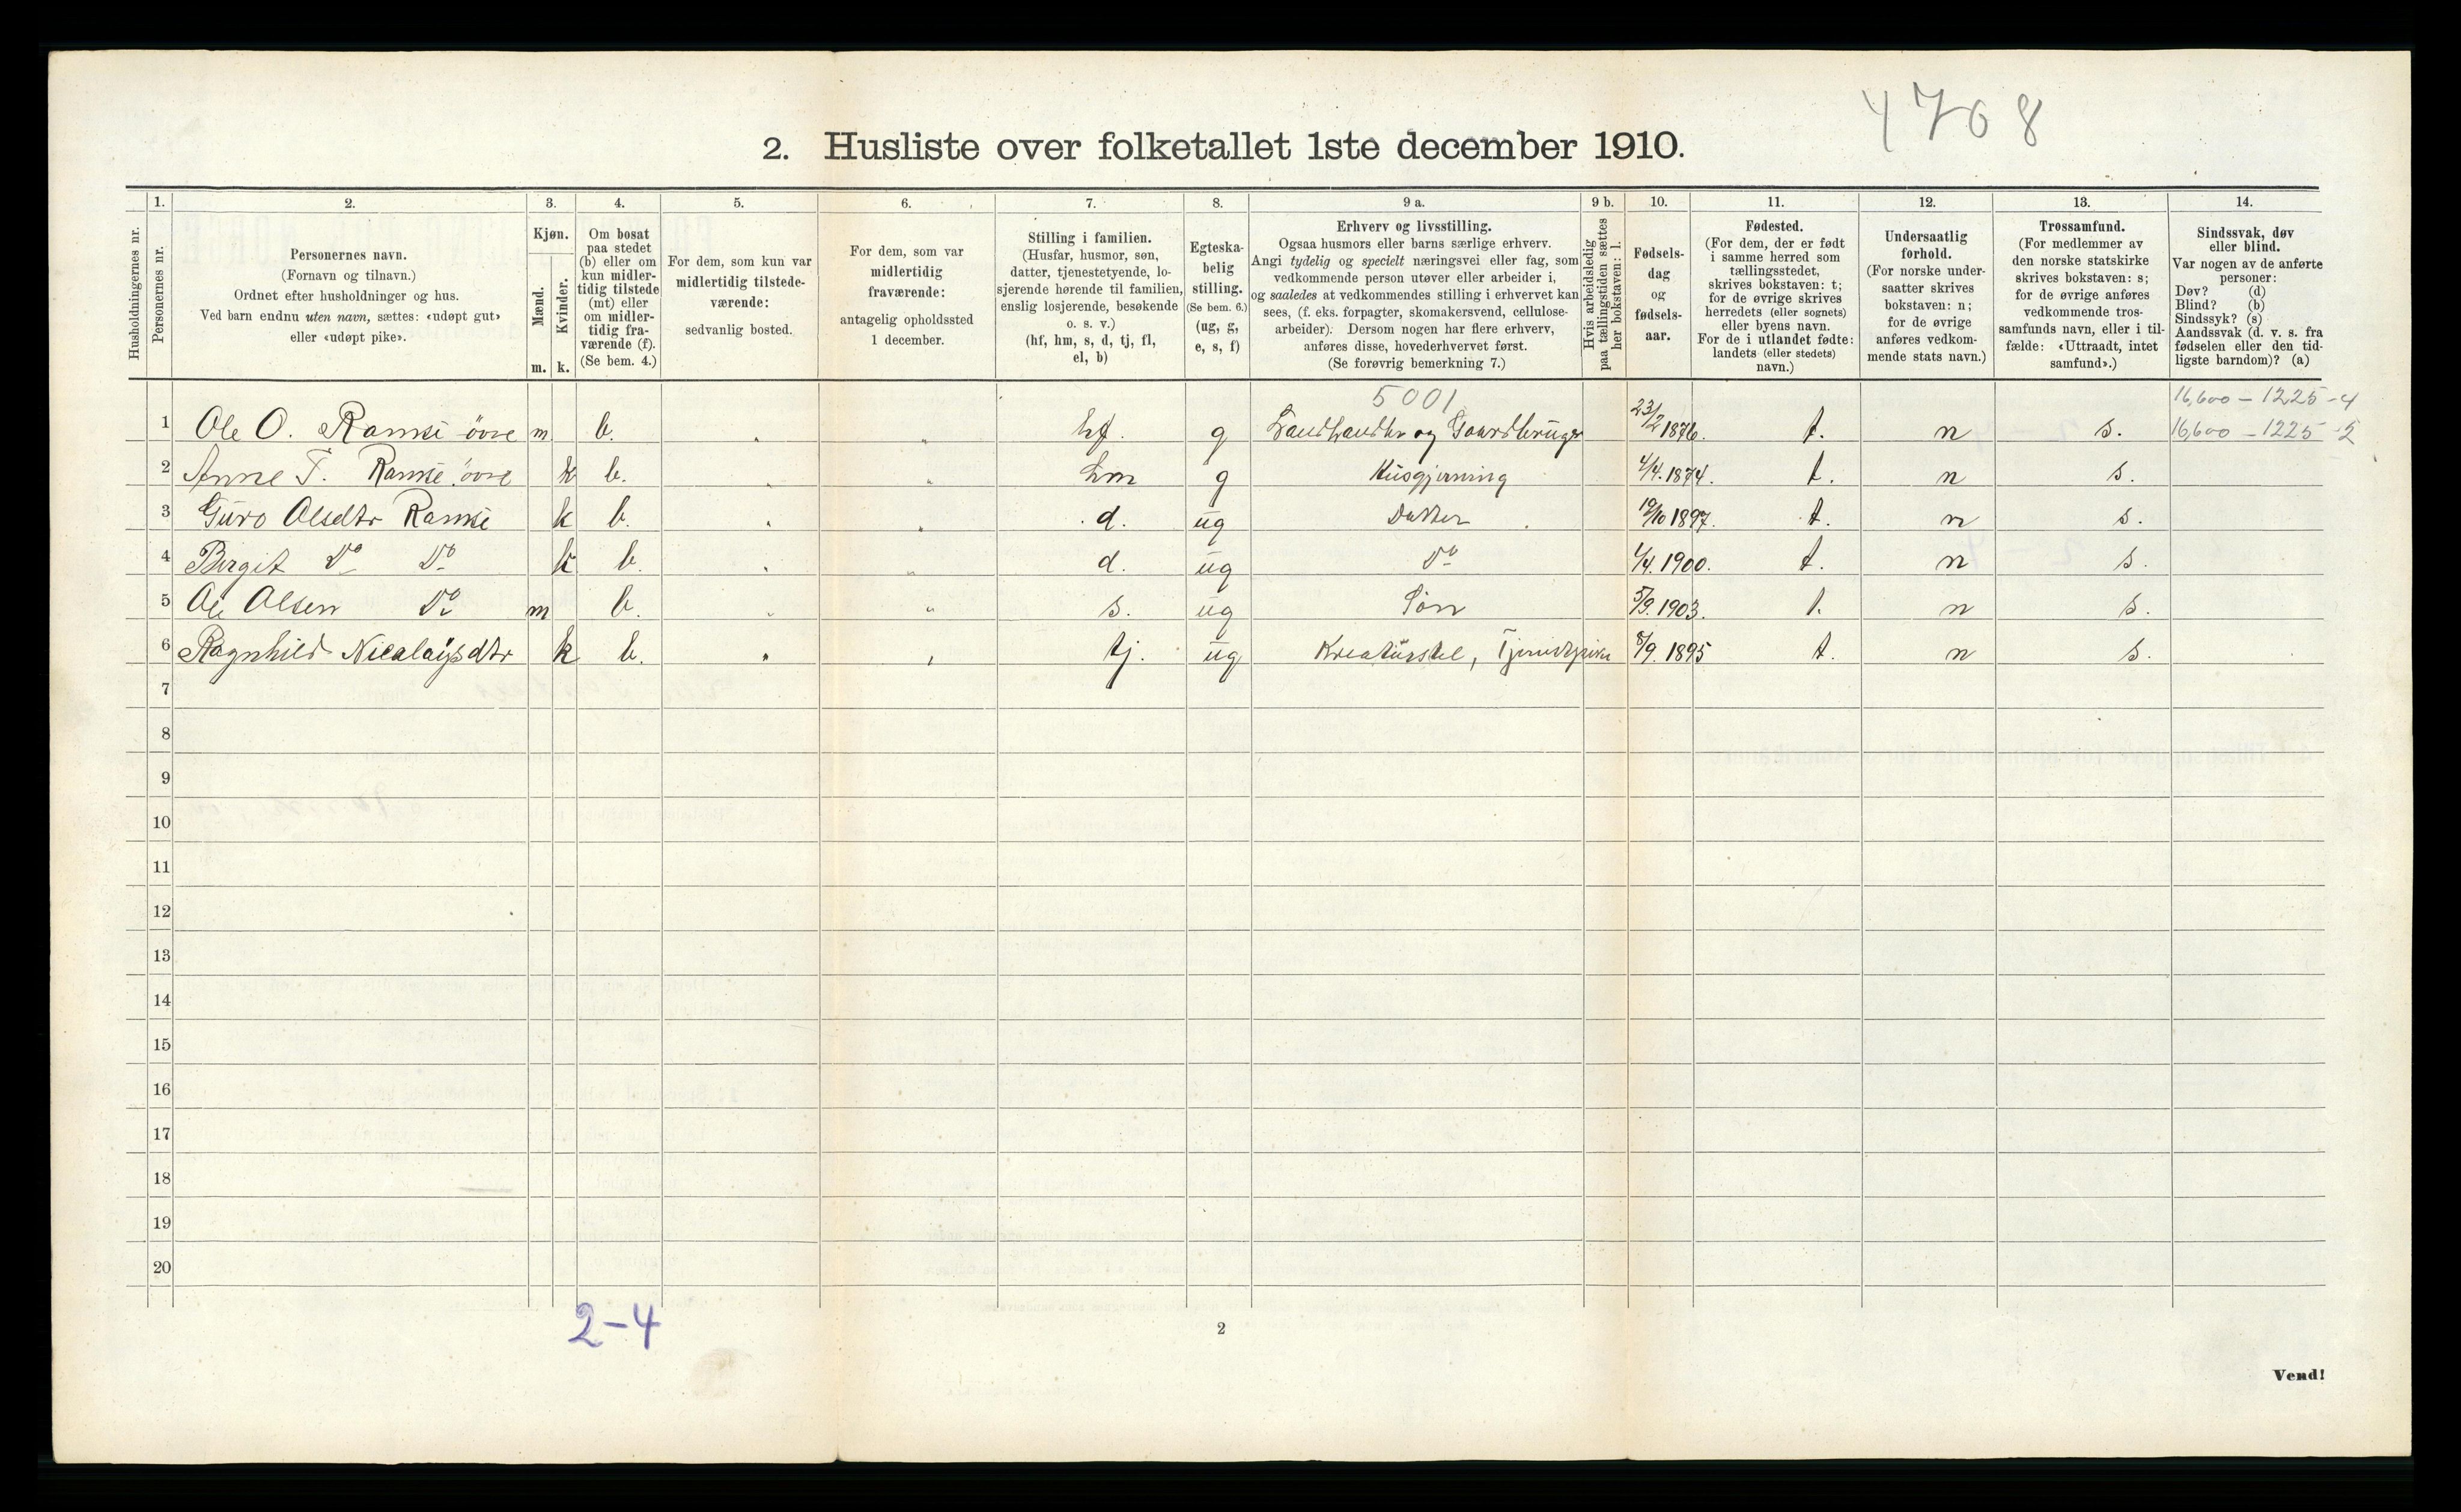 4768
2. Husliste over folketallet 1ste december 1910.
Husholdningernes nr.
1.
Personernes nr.
2.
Personernes navn.
(Fornavn og tilnavn.)
Ordnet efter husholdninger og hus.
Ved barn endnu uten navn, sættes: «udøpt gut»
eller «udøpt pike».
3.
Kjøn.
Mænd.
Kvinder.
m. k.
4.
Om bosat
paa stedet
(b) eller om
kun midler-
tidig tilstede
(mt) eller
om midler-
tidig fra-
værende (f).
(Se bem. 4.)
5.
For dem, som kun var
midlertidig tilstede-
værende:
sedvanlig bosted.
6.
For dem, som var
midlertidig
fraværende:
antagelig opholdssted
1 december.
7.
Stilling i familien.
(Husfar, husmor, søn,
datter, tjenestetyende, lo-
sjerende hørende til familien,
enslig losjerende, besøkende
o. s. v.)
(hf, hm, s, d, tj, fl,
el, b)
8.
Egteska-
belig
stilling.
(Se bem. 6.)
(ug, g,
e, s, f)
9 a.
Erhverv og livsstilling.
Ogsaa husmors eller barns særlige erhverv.
Angi tydelig og specielt næringsvei eller fag, som
vedkommende person utøver eller arbeider i,
og saaledes at vedkommendes stilling i erhvervet kan
sees, (f. eks. forpagter, skomakersvend, cellulose-
arbeider). Dersom nogen har flere erhverv,
anføres disse, hovederhvervet først.
(Se forøvrig bemerkning 7.)
9 b.
Hvis arbeidsledig
paa tællingstiden sættes
her bokstaven: l.
10.
Fødsels-
dag
og
fødsels-
aar.
11.
Fødested.
(For dem, der er født
i samme herred som
tællingsstedet,
skrives bokstaven: t;
for de øvrige skrives
herredets (eller sognets)
eller byens navn.
For de i utlandet fødte:
landets (eller stedets)
navn.)
12.
Undersaatlig
forhold.
(For norske under-
saatter skrives
bokstaven: n;
for de øvrige
anføres vedkom-
mende stats navn.)
13.
Trossamfund.
(For medlemmer av
den norske statskirke
skrives bokstaven: s;
for de øvrige anføres
vedkommende tros-
samfunds navn, eller i til-
fælde: «Uttraadt, intet
samfund».)
14.
Sindssvak, døv
eller blind.
Var nogen av de anførte
personer:
Døv? (d)
Blind? (b)
Sindssyk? (s)
Aandssvak (d. v. s. fra
fødselen eller den tid-
ligste barndom)? (a)
5001 16,600 – 1225 – 4
1 Ole O. Ramse övre m b. " " hf. g Landhandler og Gaardbruger 23/2 1876. t. n s. 16,600 – 1225 – 2
2 Anne T. Ramse övre k b. " " hm g Husgjerning 4/4. 1874. t. n s.
3 Guro Olsdtr Ramse k b. " " d. ug Datter 19/10 1897. t. n s.
4 Birgit Do Do k b. " " d. ug Do 4/4. 1900. t. n s.
5 Ole Olsen Do m b. " " s. ug Sön 5/9. 1903. t. n s.
6 Ragnhild Nicolaysdtr k b. " " tj. ug Kreaturstel, Tjenestpike 8/9. 1895 t. n s.
7
8
9
10
11
12
13
14
15
16
17
18
19
20
2–4
2
Vend!